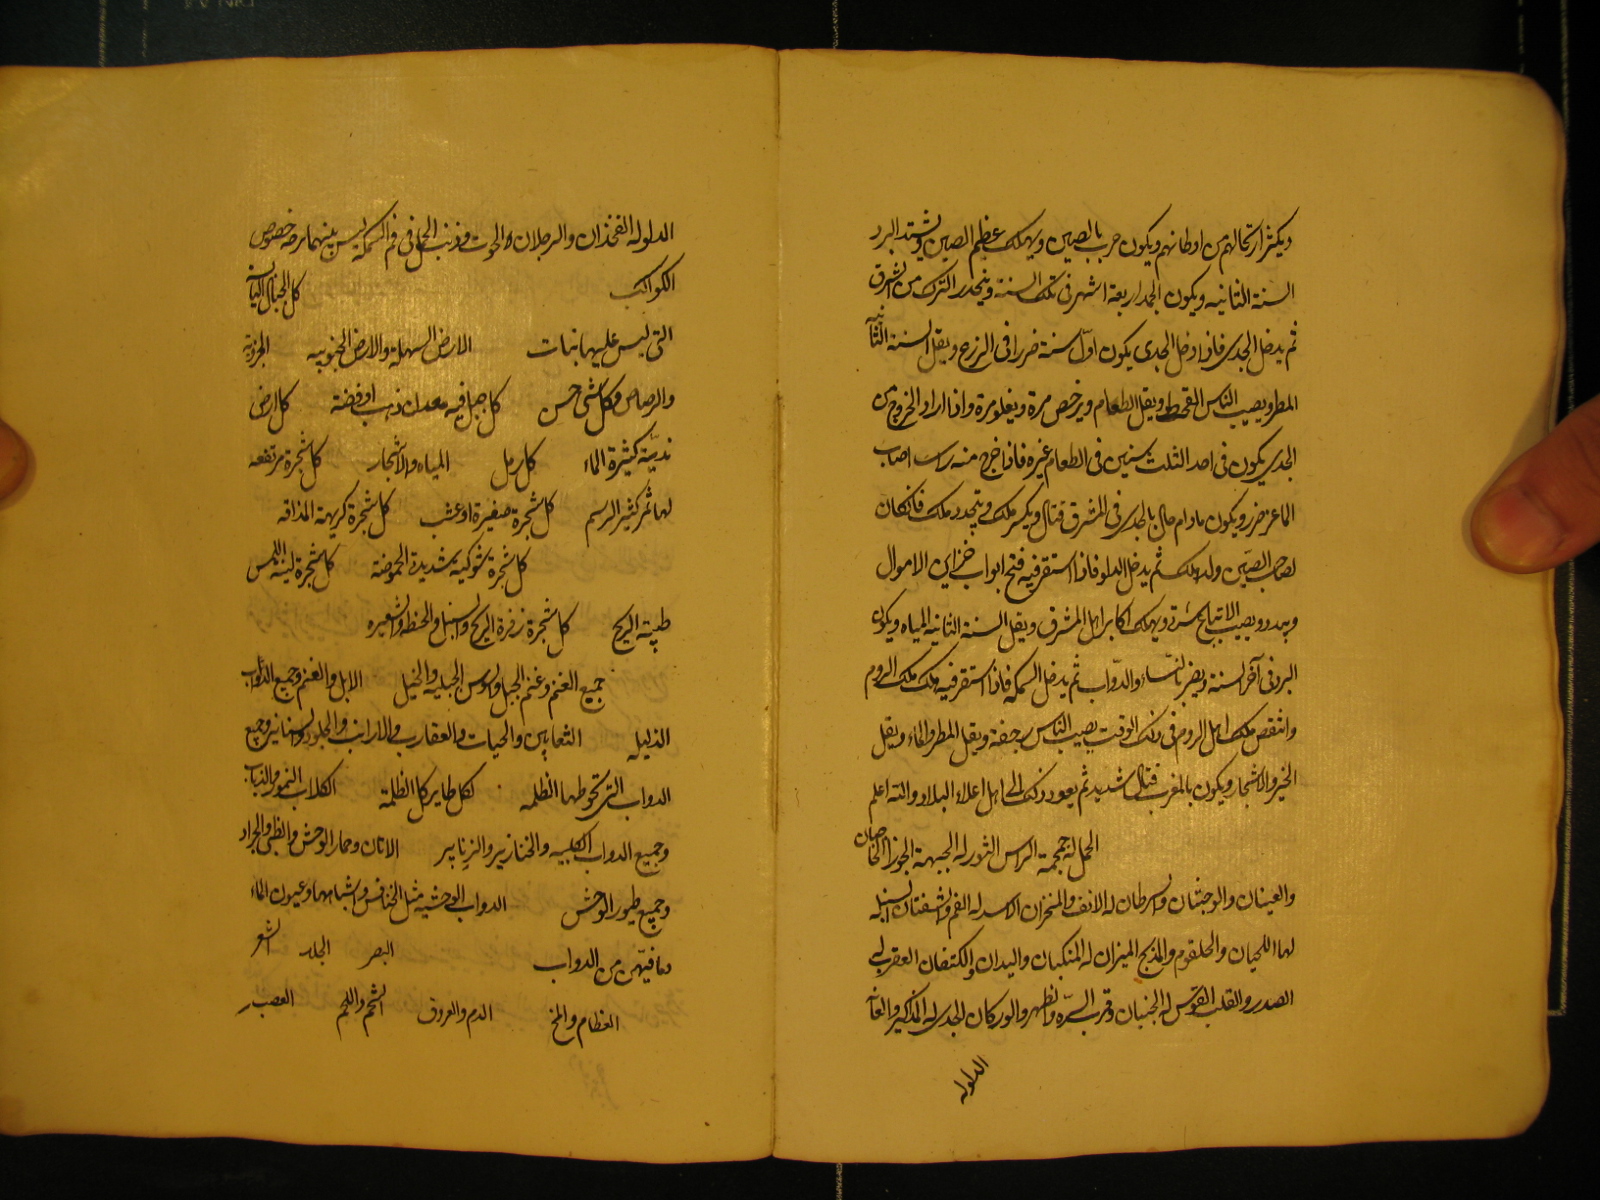 ويكثر ارتحالهم من اوطانهم ويكون حرب بالصين ويهلك عظيم الصين ويشتد البرد
السنة الثانيه ويكون الجمد اربعة اشهر في تلك السنة وينحدر الترك من الشرق
ثم يدخل الجدى فاذا دخل الجدى يكون اول سنة ضررا في الزرع ويقل السنة الثانية
المطر ويصيب الناس القحط ويقل الطعام ويرخص مرة ويغلو مرة واذا اراد الخروج من
الجدى يكون في احد الثلث سنين في الطعام غيره فاذا خرج منه اصاب
الماعز ضرر ويكون مادام حال بالجدى في المشرق قتال ويكسر ملك ويتجدد ملك فان كان
لصاحب الصين ولد هلك ثم يدخل الدلو فاذا استقر فيه فتح ابواب خزاين الاموال
ويبدد ويصيب الابل شدة ويهلك اكابر اهل المشرق ويقل السنة الثانية المياه ويكون
البرد في آخر السنة ويضر بالنساء والدواب ثم يدخل السمكه فاذا استقر فيه هلك ملك الروم
وانتقص ملك اهل الروم في ذلك الوقت يصيب الناس رجفة ويقل المطر والماء ويقل
الخير والاشجار ويكون بالمغرب قتال شديد ثم يعود ذلك الى اهل اعلاء البلاد والله اعلم
الحمل له جمجمة الراس الثور له الجبهة الجوزا الحاجبان
والعينان والوجنتان والسرطان له الانف والمنخران الاسد له الفم والشفتان السنبله
لها اللحيان والحلقوم والمذبح الميزان له المنكبان واليدان والكتفان العقرب له
الصدر والقلب القوس له الجنبان وقرب السرة والظهر والوركان الجدى له المذاكير والعانة
الدلو له
الدلو له الفخذان والرجلان الحوت وذنب الحمل في فم السمكه ليس بينهما فرجه خصوص
الكواكب كل الجبال اليابسة
التى ليس عليها نبات الارض السهلة والارض الجنوبيه
والرصاص وكل شى حسن كل جبل فيه معدن ذهب او فضة كل ارض
نديّة كثيرة الماء كل رمل المياه والاشجار كل شجرة مرتفعه
لها ثمر كثير الدسم كل شجرة صغيرة او عشب كل شجرة كريهة المذاقه
كل شجرة شوكية شديدة الحموضة كل شجرة لينة اللمس
طيبة الريح كل شجرة زفرة الريح والسنبل والحنطة والشعيره
جميع الغنم وغنم الجبل الجبليه والخيل الابل والغنم وجميع الدواب
الذليله الثعابين والحيات والعقارب الارانب والسنانير وجميع
الدواب التى الظلمه لكل طاير كل الظلمة الكلاب النمور والذياب
وجميع الدواب الكلبيه والخنازير والزنابير الاتان وحمار الوحش والظبى والجراد
وجميع طيور الوحش الدواب الوحشيه مثل الخنافس واشباهها وعيون الماء
وما فيهن من الدواب البصر الجلد الشعر
العظام والمخ الدم والعروق الشحم واللحم العصب